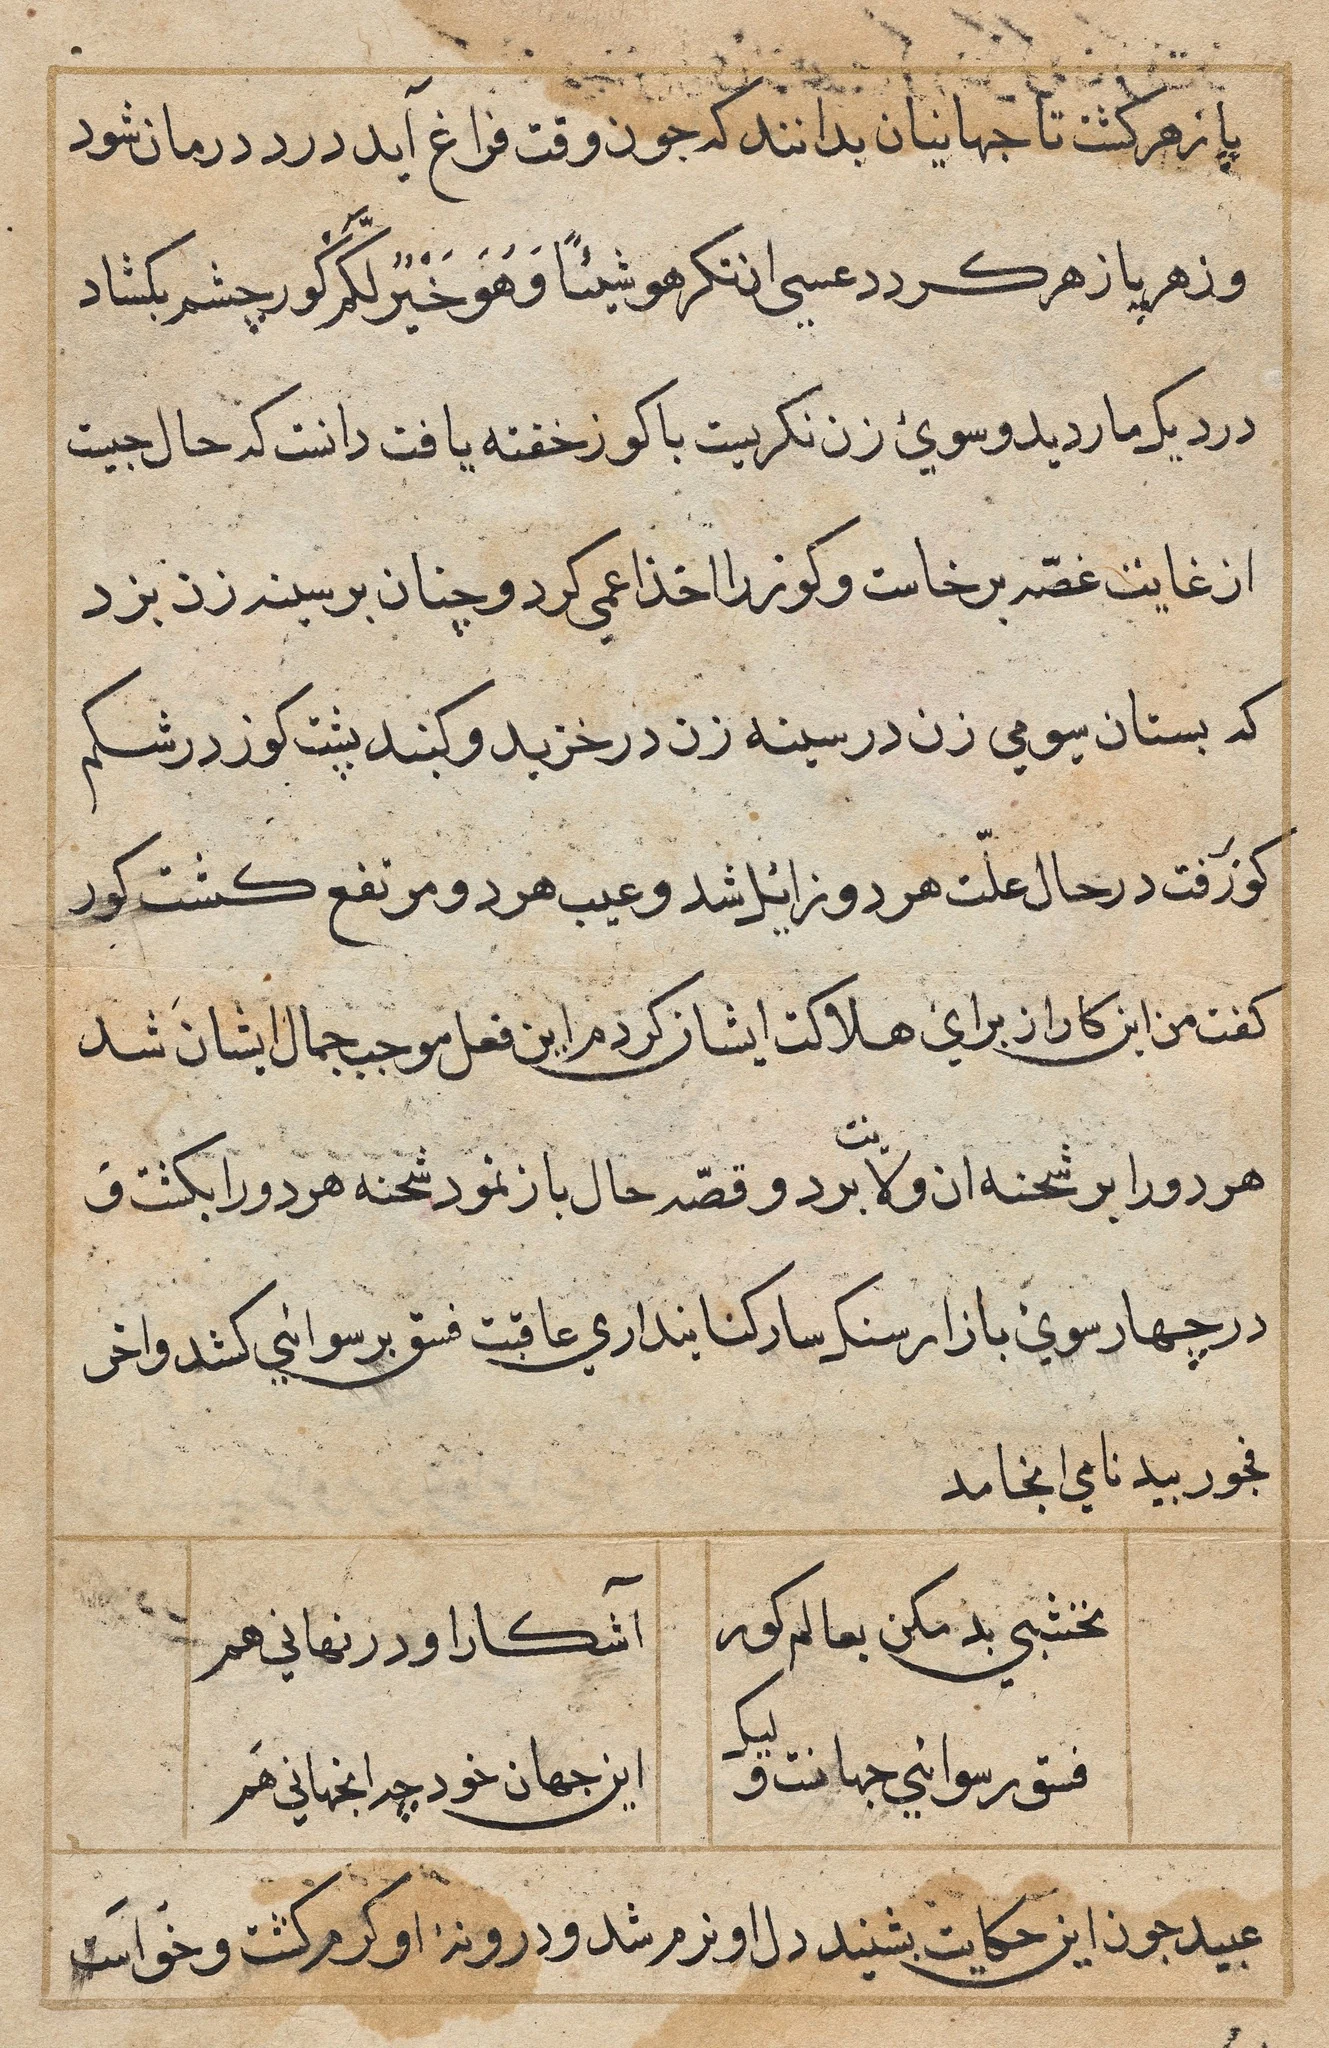 پازهر کشت تا جهانیان بدانند که جون وقت فراغ آید درد درمان شود
و زهر پازهر کردد عسی ان تکرهو شیئًا وَهُوَ خَیْرٌ لَّکُم کور چشم بکشاد
در دیک مار دید و سوئ زن نکریست با کوز خفته یافت دانست که حال جیست
از غایت غصّه برخاست و کوز را اخذ اعمی کرد و چنان بر سینه زن بزد
که بستان سیومی زن در سینه زن در خزید و کنبد پشت کوز در شکم
کوز رفت در حال علّت هر دو زائل شد و عیب هر دو مرتفع کشت کور
کفت من این کار از برائ هلاکت ایشان کردم این فعل موجب جمال ایشان شد
هر دو را بر شحنه ان ولایت برد و قصّه حال باز نمود شحنه هر دو را بکشت و
در چهار سوئ بازار سنکسار کنا بنداری عاقبت فسق برسوائی کشد و اخر
فجور ببد نامی انجامد
نخشبی بد مکن بعالم کور آشکارا و در نهانی هم
فسق رسوائی جهانست ولیک این جهان خود چه انجهانی هم
عبید جون این حکایت بشنید دل او نرم شد و درونۀ او کرم کشت و خواست